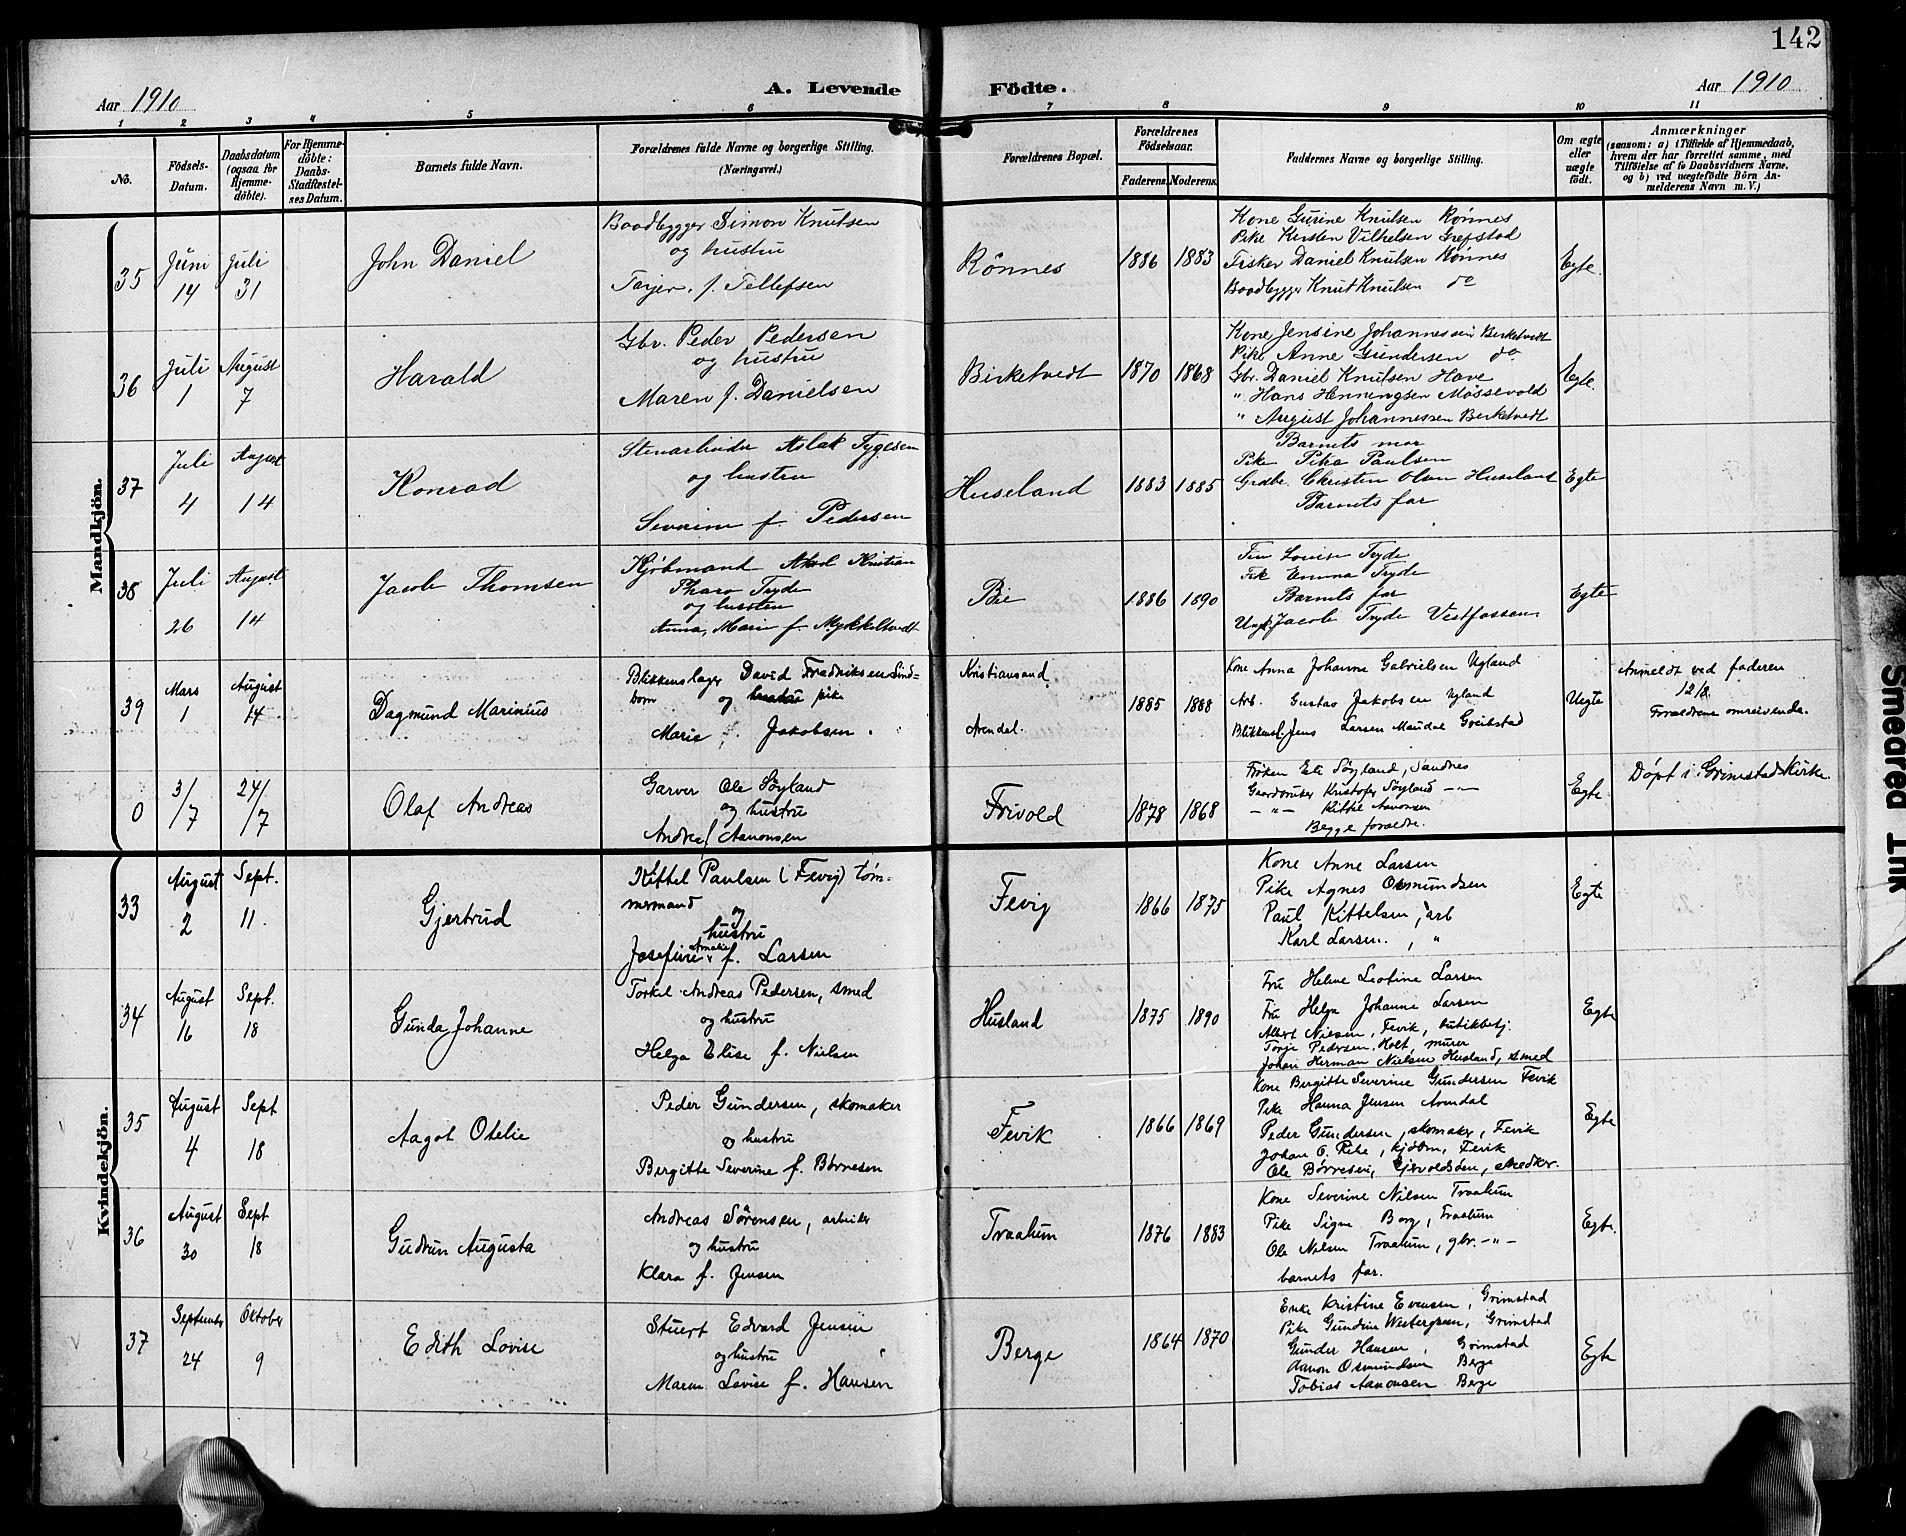 142
Aar 1910
A. Levende Födte.
Aar 1910
1 2 3 4 5 6 7 8 9 10 11
No.
Födsels-
Datum.
Daabsdatum
(ogsaa for
Hjemme-
döbte).
For Hjemme-
döbte:
Daabs-
Stadfæstel-
ses Datum.
Barnets fulde Navn.
Forældrenes fulde Navne og borgerlige Stilling.
(Næringsvei.)
Forældrenes Bopæl.
Forældrenes
Födselsaar.
Faderens. Moderens.
Faddernes Navne og borgerlige Stilling.
Om ægte
eller
uægte
födt.
Anmærkninger
(saasom: a) i Tilfælde af Hjemmedaab,
hvem der har forrettet samme, med
Tilföielse af to Daabsvidners Navne,
og b) ved uægtefödte Börn An-
melderens Navn m. V.)
Mandkjön.
35
Juni
14
Juli
31
John Daniel
Baadbygger Simon Knutsen
og hustru
Torjer. f. Tellefsen
Rönnes
1886 1883
Kone Gurine Knutsen Rönnes
Pike Kirsten Vilhelsen Grefstad
Fisker Daniel Knutsen Rönnes
Baadbygger Knut Knutsen do
Egte.
36
Juli
1
August
7
Harald
Gbr. Peder Pedersen
og hustru
Maren f. Danielsen
Birketvedt
1870 1868
Kone Jensine Johannessen Birketvedt
Pike Anne Gundersen do
Gbr. Daniel Knutsen Have
" Hans Henningsen Mössevold
" August Johannessen Berketvedt
Egte.
37
Juli
4
August
14
Konrad
Stenarbeider Aslak Tygesen
og hustru
Severine f. Pedersen
Huseland
1883 1885
Barnets mor
Pike Petra Paulsen
Grdbr. Christen Olsen Huseland
Barnets far
Egte
38
Juli
26
August
14
Jacob Thomsen
Kjöbmand Axel Kristian
Pharo Tryde
og hustru
Anna Marie f. Mykkeltvedt
Bie
1886 1890
Fru Louise Tryde
Frk Emma Tryde
Barnets far
Ungk. Jacob Tryde Vestfossen
Egte
39
Mars
1
August
14
Dagmund Marinius
Blikkenslager David Fredriksen Lind=
born og hustru pike
Marie, Jakobsen.
Kristiansand
Arendal.
1885 1888
Kone Anna Johanne Gabrielsen Ugland
Arb. Gustav Jakobsen Ugland
Blikkensl. Jens Larsen Maudal Greibstad
Uegte
Anmeldt ved faderen
12/8.
Foraldrene omreisende.
0
3/7
24/7
Olaf Andreas
Garver Ole Söyland
og hustru
Andrea f. Aanonsen
Frivold
1878 1868
Fröken Eli Söyland, Sandnes
Gaardbruker Kristofer Söyland -"-
-"- Kittil Aanonsen
Begge foraldre.
Egte
Döpt i Grimstad Kirke.
Kvindekjön.
33
August
2
Sept.
11.
Gjertrud
Kittel Paulsen (Fevig) töm-
mermand og
hustru
Josefine Amalie f. Larsen
Fevig
1866 1875
Kone Anne Larsen
Pike Agnes Osmundsen
Paul Kittelsen, arb
Karl Larsen. , "
Egte
34
August
16
Sept.
18
Gunda Johanne
Torkel Andreas Pedersen, smed
og hustru
Helga Elise f. Nielsen
Husland
1875 1890
Fru Helene Leotine Larsen
Fru Helga Johanne Larsen
Albert Nielsen, Fevik, butikbetj.
Torje Pedersen, Holt, murer
Johan Herman Nielsen Husland, smed
Egte
35
August
4
Sept
18
Aagot Otelie
Peder Gundersen, skomaker
og hustru
Bergitte Severine f. Börresen
Fevik
1866 1869
Kone Bergitte Severine Gundersen Fevik
Pike Hanna Jensen Arendal
Peder Gundersen, skomaker, Fevik
Johan O. Pebe, kjöbm, Fevik
Ole Börresen, Gjervoldsöen, snedker.
Egte
36
August
30
Sept
18
Gudrun Augusta
Andreas Sörensen, arbeider
og hustru
Klara f. Jensen
Traalum
1876 1883
Kone Severine Nilsen Traalum
Pike Signe Borg, Traalum
Ole Nilsen Traalum, gbr. -"-
barnets far.
Egte.
37
September
24
Oktober
9
Edith Lovise
Stuert Edvard Jensen
og hustru
Maren Lovise f. Hansen
Berge
1864 1870
Enke Kristine Evensen, Grimstad
Pike Gundine Westergreen, Grimstad
Gunder Hansen, Grimstad
Aanon Osmundsen Berge
Tobias Aanonsen Berge
Egte
Smeared Ink